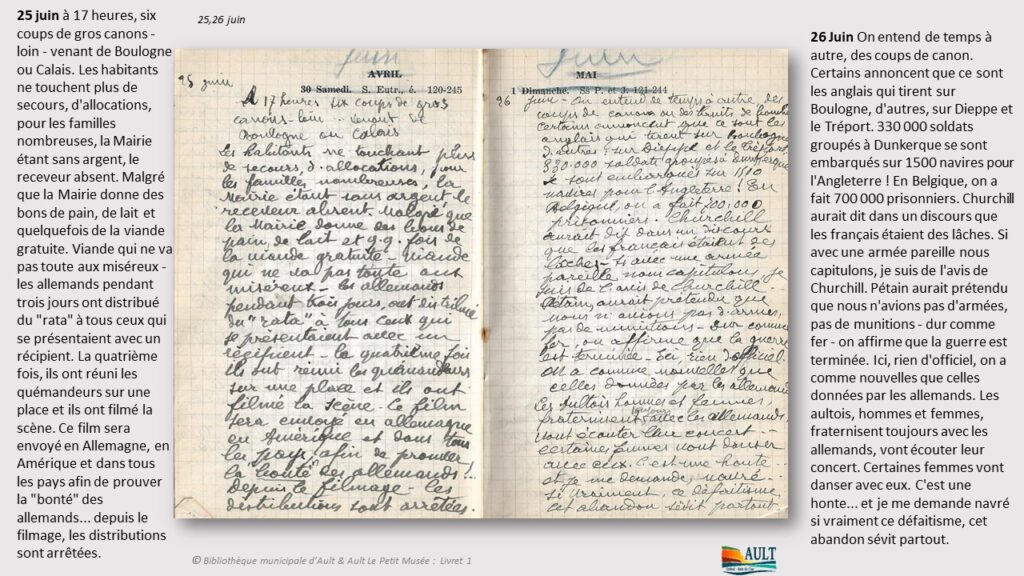 25 juin à 17 heures, six
coups de gros canons -
loin - venant de Boulogne
ou Calais. Les habitants
ne touchent plus de
secours, d'allocations,
pour les familles
nombreuses, la Mairie
étant sans argent, le
receveur absent. Malgré
que la Mairie donne des
bons de pain, de lait et
quelquefois de la viande
gratuite. Viande qui ne va
pas toute aux miséreux -
les allemands pendant
trois jours ont distribué
du "rata" à tous ceux qui
se présentaient avec un
récipient. La quatrième
fois, ils ont réuni les
quémandeurs sur une
place et ils ont filmé la
scène. Ce film sera
envoyé en Allemagne, en
Amérique et dans tous
les pays afin de prouver
la "bonté" des
allemands... depuis le
filmage, les distributions
sont arrêtées.
25,26 juin
Juin
AVRIL
30 Samedi. S. Eutr., é. 120-245
25 juin
A 17 heures six coups de gros
canons - loin - venant de
Boulogne ou Calais
Les habitants ne touchant plus
de secours, d'allocations, pour
les familles nombreuses, la
Mairie étant sans argent le
receveur absent. Malgré que
la Mairie donne des bons de
pain, de lait et q.q. fois de
la viande gratuite - Viande
qui ne va pas toute aux
miséreux - les allemands
pendant trois jours, ont distribué
du "rata" à tous ceux qui
se présentaient avec un
récipient - la quatrième fois
ils ont réuni les quémandeurs
sur une place et ils ont
filmé la scène - Ce film
sera envoyé en allemagne
en Amérique et dans tous
les pays, afin de prouver
la "bonté" des allemands!..
depuis le filmage - les
distributions sont arrêtées.
Juin
MAI
1 Dimanche. Ss P. et J. 121-244
26 juin - On entend de temps à autre des
coups de canons ou des bruits de
certains annoncent que ce sont les
anglais qui tirent sur Boulogne
d'autres, sur Dieppe et le Tréport.
330.000 soldats groupés à Dunkerque
se sont embarqués sur 1510
navires pour l'Angleterre! En
Belgique, on a fait 700.000
prisonniers. Churchill
aurait dit dans un discours
que les français étaient des
lâches - Si avec une armée
pareille nous capitulons, je
suis de l'avis de Churchill.
Pétain aurait prétendu que
nous n'avions pas d'armes,
pas de munitions - Dur comme
fer, on affirme que la guerre
est terminée - Ici, rien d'officiel
on a comme nouvelles que
celles données par les allemands
Les Aultois hommes et femmes,
fraternisent toujours avec les allemands,
vont écouter leur concert -
certaines femmes vont danser
avec eux. C'est une honte..
et je me demande, navré
si vraiment, ce défaitisme,
cet abandon sévit partout
26 Juin On entend de temps à
autre, des coups de canon.
Certains annoncent que ce sont
les anglais qui tirent sur
Boulogne, d'autres, sur Dieppe et
le Tréport. 330 000 soldats
groupés à Dunkerque se sont
embarqués sur 1500 navires pour
l'Angleterre ! En Belgique, on a
fait 700 000 prisonniers. Churchill
aurait dit dans un discours que
les français étaient des lâches. Si
avec une armée pareille nous
capitulons, je suis de l'avis de
Churchill. Pétain aurait prétendu
que nous n'avions pas d'armées,
pas de munitions - dur comme
fer - on affirme que la guerre est
terminée. Ici, rien d'officiel, on a
comme nouvelles que celles
données par les allemands. Les
aultois, hommes et femmes,
fraternisent toujours avec les
allemands, vont écouter leur
concert. Certaines femmes vont
danser avec eux. C'est une
honte... et je me demande navré
si vraiment ce défaitisme, cet
abandon sévit partout.
© Bibliothèque municipale d'Ault & Ault Le Petit Musée : Livret 1
AULT